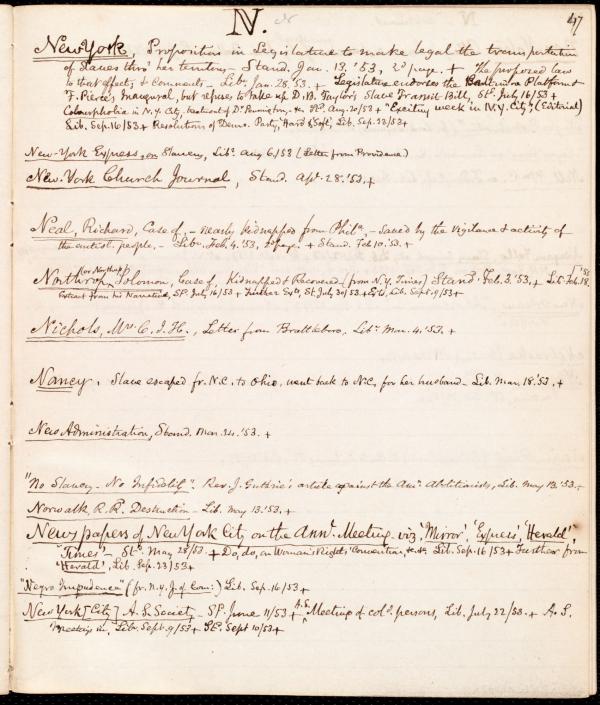 N.
47
New York, Proposition in Legislature to make legal the transportation
of slaves thro' her territory - Stand. Jan. 13. '53, 2d page. + The proposed law
to that effect, & comments - Lib. Jan. 28. '53. + Legislature endorses the Baltimore Platform &
F. Pierce's Inaugural, but refuses to take up D. B. Taylor's Slave Transit Bill, St. July 16/53 +
Colourphobia in N.Y. City, treatment of Dr. Pennington - Aug. 20/52 + "Exciting week in N.Y. City" (Editorial)
Lib. Sep. 16/53 + Resolutions of Demo. Party, Hard & Soft, Lib. Sep. 23/53 +
New-York Express, on Slavery, Lib. Aug 6/53 (Letter from Providence)
New-York Church Journal, Stand. Apl. 28. '53. +
Neal, Richard, Case of, - nearly kidnapped from Phila, - saved by the vigilance & activity of
the antisl. people, - Lib. Feb. 4. '53, page. + Stand. Feb 10. '53. +
Northrop (or Northup) Solomon, Case of, Kidnapped & Recovered - (from N.Y. Times) Stand. Feb. 3. '53, + Lib. Feb. 18. '53
Extract from his Narrative, St. July 16/53 + Further Exts, St. July 30/53 + Exts, Lib. Sept. 9/53 +
Nichols, Mrs. C. I. H., Letter from Brattleboro, Lib. Mar. 4. '53. +
Nancy. Slave escaped fr. N.C. to Ohio, went back to N.C. for her husband - Lib. Mar. 18. '53. +
New Administration, Stand. Mar. 24. '53. +
"No Slavery - No Infidelity". Rev. J. Guthrie's article against the Amn. Abolitionists, Lib. May 13. '53. +
Norwalk, R. R. Destruction - Lib. May 13. '53. +
Newspapers of New York City on the Annl. Meeting. viz 'Mirror', 'Express', 'Herald',
'Times' - St. May 28/53. + Do, do, on Woman's Rights Convention, &c &c Lib. Sep. 16/53 + Further from
'Herald', Lib. Sep. 23/53 +
"Negro Impudence" (fr. N.Y. J. of Com:) Lib. Sep. 16/53 +
New York [City] A. S. Society - St. June 11/53 + A.S. Meeting of cold. persons, Lib. July 22/53. + A. S.
Meetings in, Lib. Sept. 9/53 + St. Sept 10/53 +